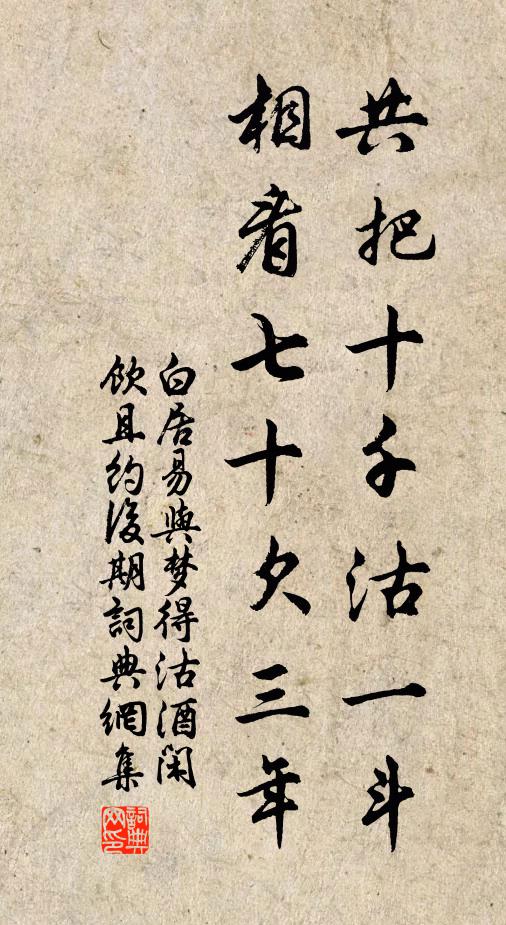 共把十千沽一斗
相看七十欠三年
白居易與梦得沽酒閑
飲且約後期詞典網集
詞典
网印